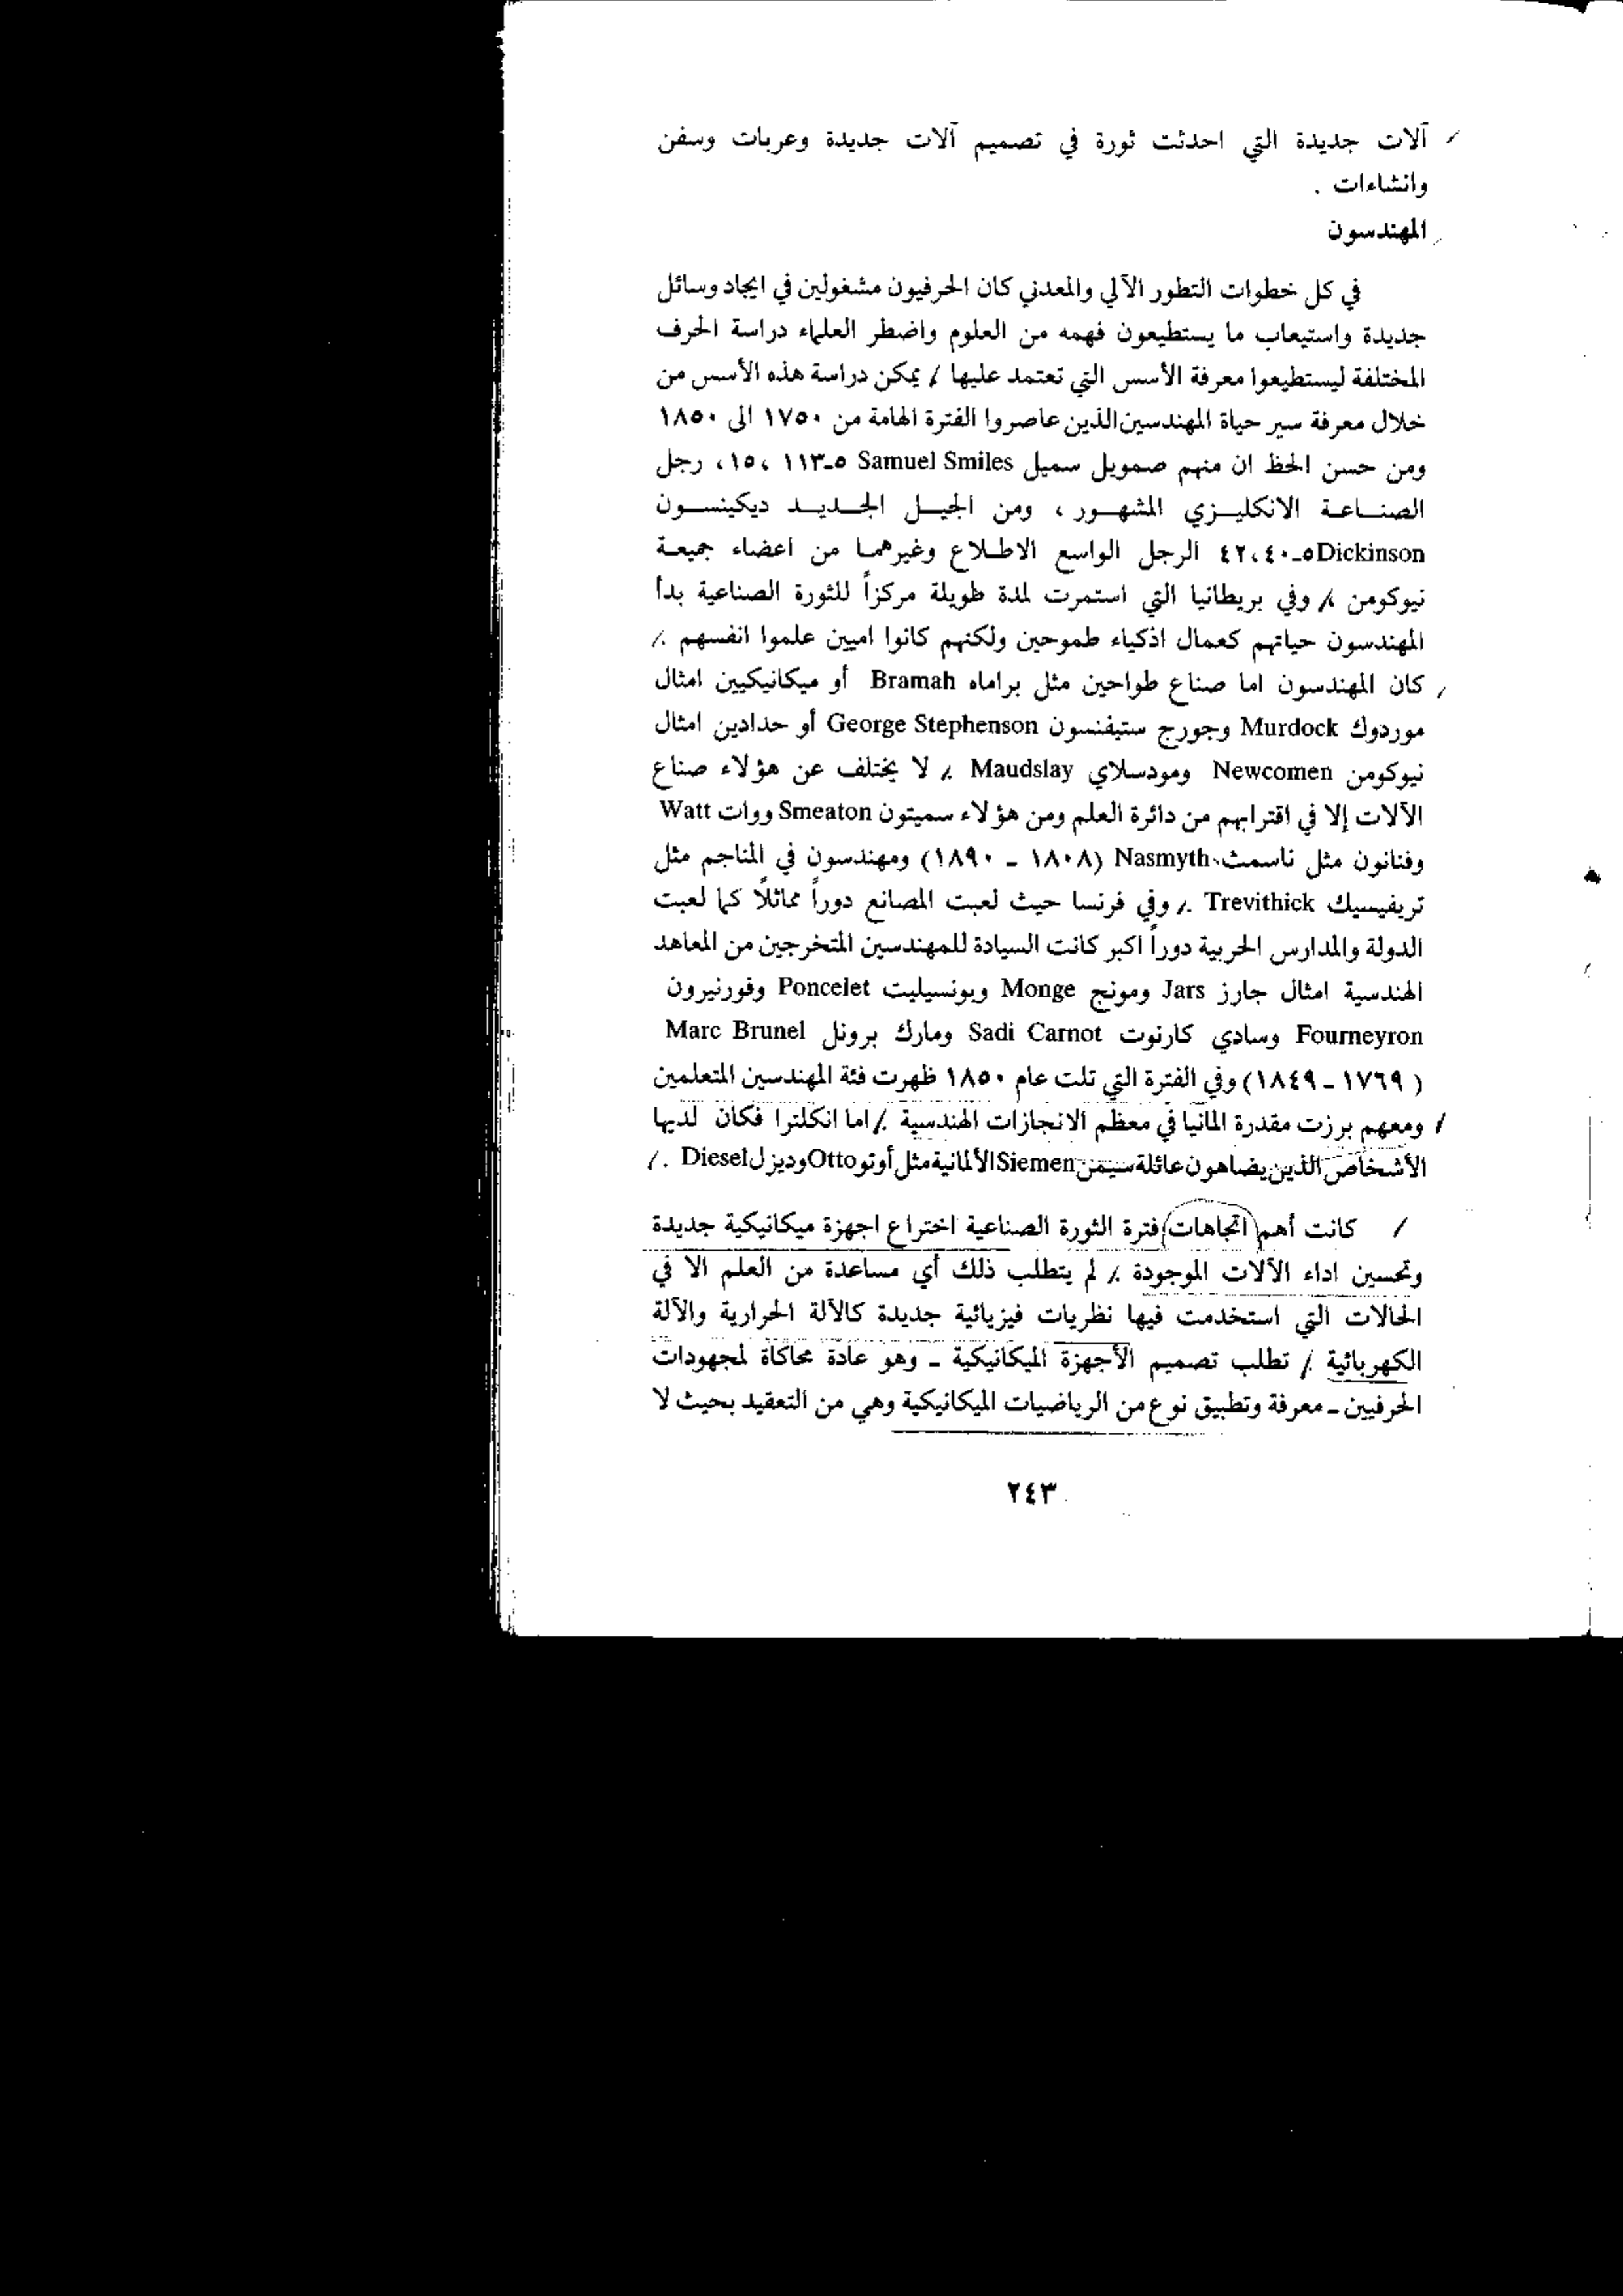 آلات جديدة التي احدثت ثورة في تصميم آلات جديدة وعربات وسفن
وانشاءات .
المهندسون
في كل خطوات التطور الآلي والمعدني كان الحرفيون مشغولين في ايجاد وسائل
جديدة واستيعاب ما يستطيعون فهمه من العلوم واضطر العلماء دراسة الحرف
المختلفة ليستطيعوا معرفة الأسس التي تعتمد عليها / يمكن دراسة هذه الأسس من
خلال معرفة سير حياة المهندسين الذين عاصروا الفترة الهامة من ١٧٥٠ الى ١٨٥٠
ومن حسن الحظ ان منهم صمويل سميل Samuel Smiles ٥-١١٣ ،١٥، رجل
الصناعة الانكليزي المشهور ، ومن الجيل الجديد ديكينسون
Dickinson ٥-٤٠،٤٢ الرجل الواسع الاطلاع وغيرهما من اعضاء جميعة
نيوكومن / وفي بريطانيا التي استمرت لمدة طويلة مركزاً للثورة الصناعية بدأ
المهندسون حياتهم كعمال اذكياء طموحين ولكنهم كانوا اميين علموا انفسهم ./
كان المهندسون اما صناع طواحين مثل براماه Bramah أو ميكانيكيين امثال
موردوك Murdock وجورج ستيفنسون George Stephenson أو حدادين امثال
نيوكومن Newcomen ومودسلاي Maudslay ./ لا يختلف عن هؤلاء صناع
الآلات إلا في اقترابهم من دائرة العلم ومن هؤلاء سميتون Smeaton ووات Watt
وفنانون مثل ناسمث Nasmyth (١٨٠٨ - ١٨٩٠) ومهندسون في المناجم مثل
تريفيسيك Trevithick ./ وفي فرنسا حيث لعبت المصانع دوراً مماثلاً كما لعبت
الدولة والمدارس الحربية دوراً اكبر كانت السيادة للمهندسين المتخرجين من المعاهد
الهندسية امثال جارز Jars ومونج Monge وبونسيليت Poncelet وفورنيرون
Fourneyron وسادي كارنوت Sadi Carnot ومارك برونل Marc Brunel
(١٧٦٩ - ١٨٤٩) وفي الفترة التي تلت عام ١٨٥٠ ظهرت فئة المهندسين المتعلمين
ومعهم برزت مقدرة المانيا في معظم الانجازات الهندسية ./ اما انكلترا فكان لديها
الأشخاص الذين يضاهون عائلة سيمن Siemen الألمانية مثل أوتو Otto وديزل Diesel ./
كانت أهم اتجاهات فترة الثورة الصناعية اختراع اجهزة ميكانيكية جديدة
وتحسين اداء الآلات الموجودة ./ لم يتطلب ذلك أي مساعدة من العلم الا في
الحالات التي استخدمت فيها نظريات فيزيائية جديدة كالآلة الحرارية والآلة
الكهربائية ./ تطلب تصميم الأجهزة الميكانيكية - وهو عادة محاكاة لمجهودات
الحرفيين - معرفة وتطبيق نوع من الرياضيات الميكانيكية وهي من التعقيد بحيث لا
٢٤٣